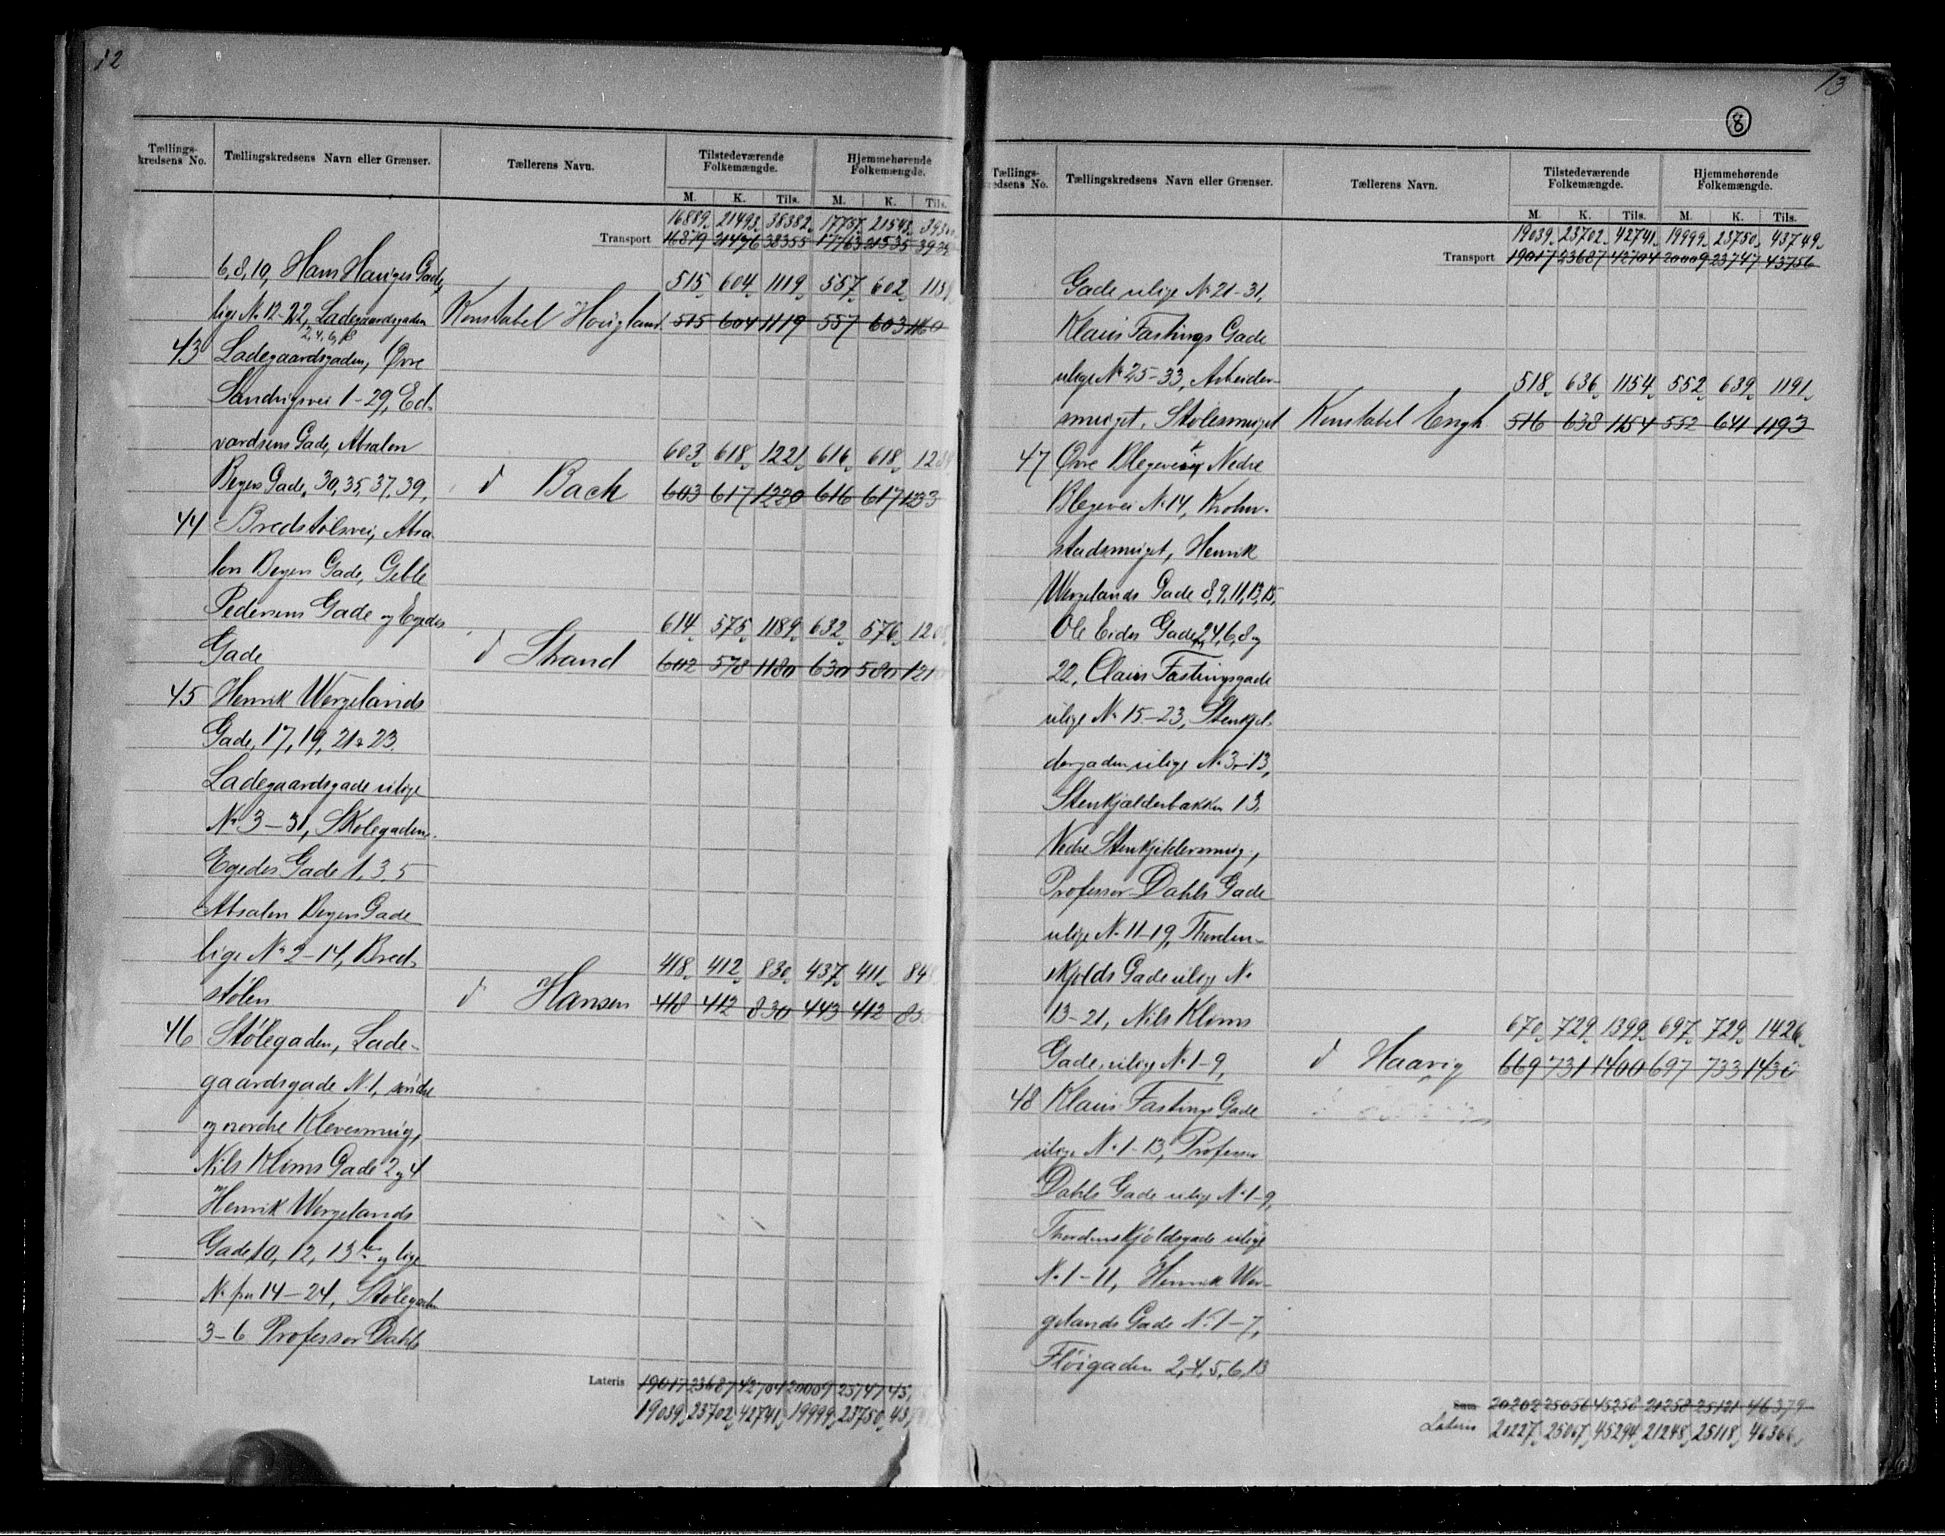 12
Tællings-kredsens No. Tællingskredsens Navn eller Grænser. Tællerens Navn. Tilstedeværende Folkemængde. Hjemmehørende Folkemængde.
M. K. Tils. M. K. Tils.
16889 21493 38382 17757 21543
Transport 16879 21476 38355 17763 21535
6, 8, 10, Hans Hauges Gade
515 604 1119 557 602
lige No 12-22, Ladegaardsgaden Konstabel Hougland 515 604 1119 557 603 1160
2, 4, 6, 8
43 Ladegaardsgaden, Øvre
Sandvigsvei 1-29, Ed-
vardsens Gade, Absalon
603 618 1221 616 618
Beyers Gade, 30, 35, 37, 39, d Bach 603 617 1220 616 617 1233
44 Bredstølsvei, Absa-
lon Beyers Gade, Geble
Pedersens Gade og Egedes
614 575 1189 632 576
Gade d Strand 602 578 1180 630 580
45 Henrik Wergelands
Gade, 17, 19, 21 & 23
Ladegaardsgade ulige
No 3-31, Skolegaden
Egedes Gade 1, 3, 5
Absalon Beyers Gade
lige No 2-14, Bred-
418 412 830 437 411
stølen d Hansen 418 412 830 443 412
46 Stølegaden, Lade-
gaardsgade No 1, søndre
og nordre Klevesmug,
Nils Klims Gade 2 og 4
Henrik Wergelands
Gade 10, 12, 13b og lige
No fra 14-24, Stølegaden
3-6 Professor Dahls
Lateris 19017 23687 42704 20009 23747
19039 23702 42741 19999 23750
13
8
Tællings-kredsens No. Tællingskredsens Navn eller Grænser. Tællerens Navn. Tilstedeværende Folkemængde. Hjemmehørende Folkemængde.
M. K. Tils. M. K. Tils.
19039 23702 42741 19999 23750 43749
Transport 19017 23687 42704 20009 23747 43756
Gade ulige No 21-31,
Klaus Fastings Gade
ulige No 25-33, Arbeider-
518 636 1154 552 639 1191
smuget, Stølesmuget Konstabel Engh 516 638 1154 552 641 1193
47 Øvre Blegevei, Nedre
Blegevei No 14, Krohn-
stadsmuget, Henrik
Wergelands Gade 8, 9, 11, 13, 15,
Ole Eides Gade 2, 4, 6, 8 og
22, Claus Fastingsgade
ulige No 15-23, Stenkjel-
dergaden ulige No 3-13,
Stenkjælderbakken 13,
Nedre Stenkjeldersmug,
Professor Dahls Gade
ulige No 11-19, Thorden-
skjolds Gade ulige No
13-21, Nils Klims
670 729 1399 697 729 1426
Gade ulige No 1-9, d Haavig 669 731 1400 697 733 1430
48 Klaus Fastings Gade
ulige No 1-13, Professor
Dahls Gade ulige No 1-9,
Thordenskjoldsgade ulige
No 1-11, Henrik Wer-
gelands Gade No 1-7,
Fløigaden 2, 4, 5, 6, 13
Sum 20202 25056 45258 21258 25121 46379
Lateris 20227 25067 45294 21248 25118 46366